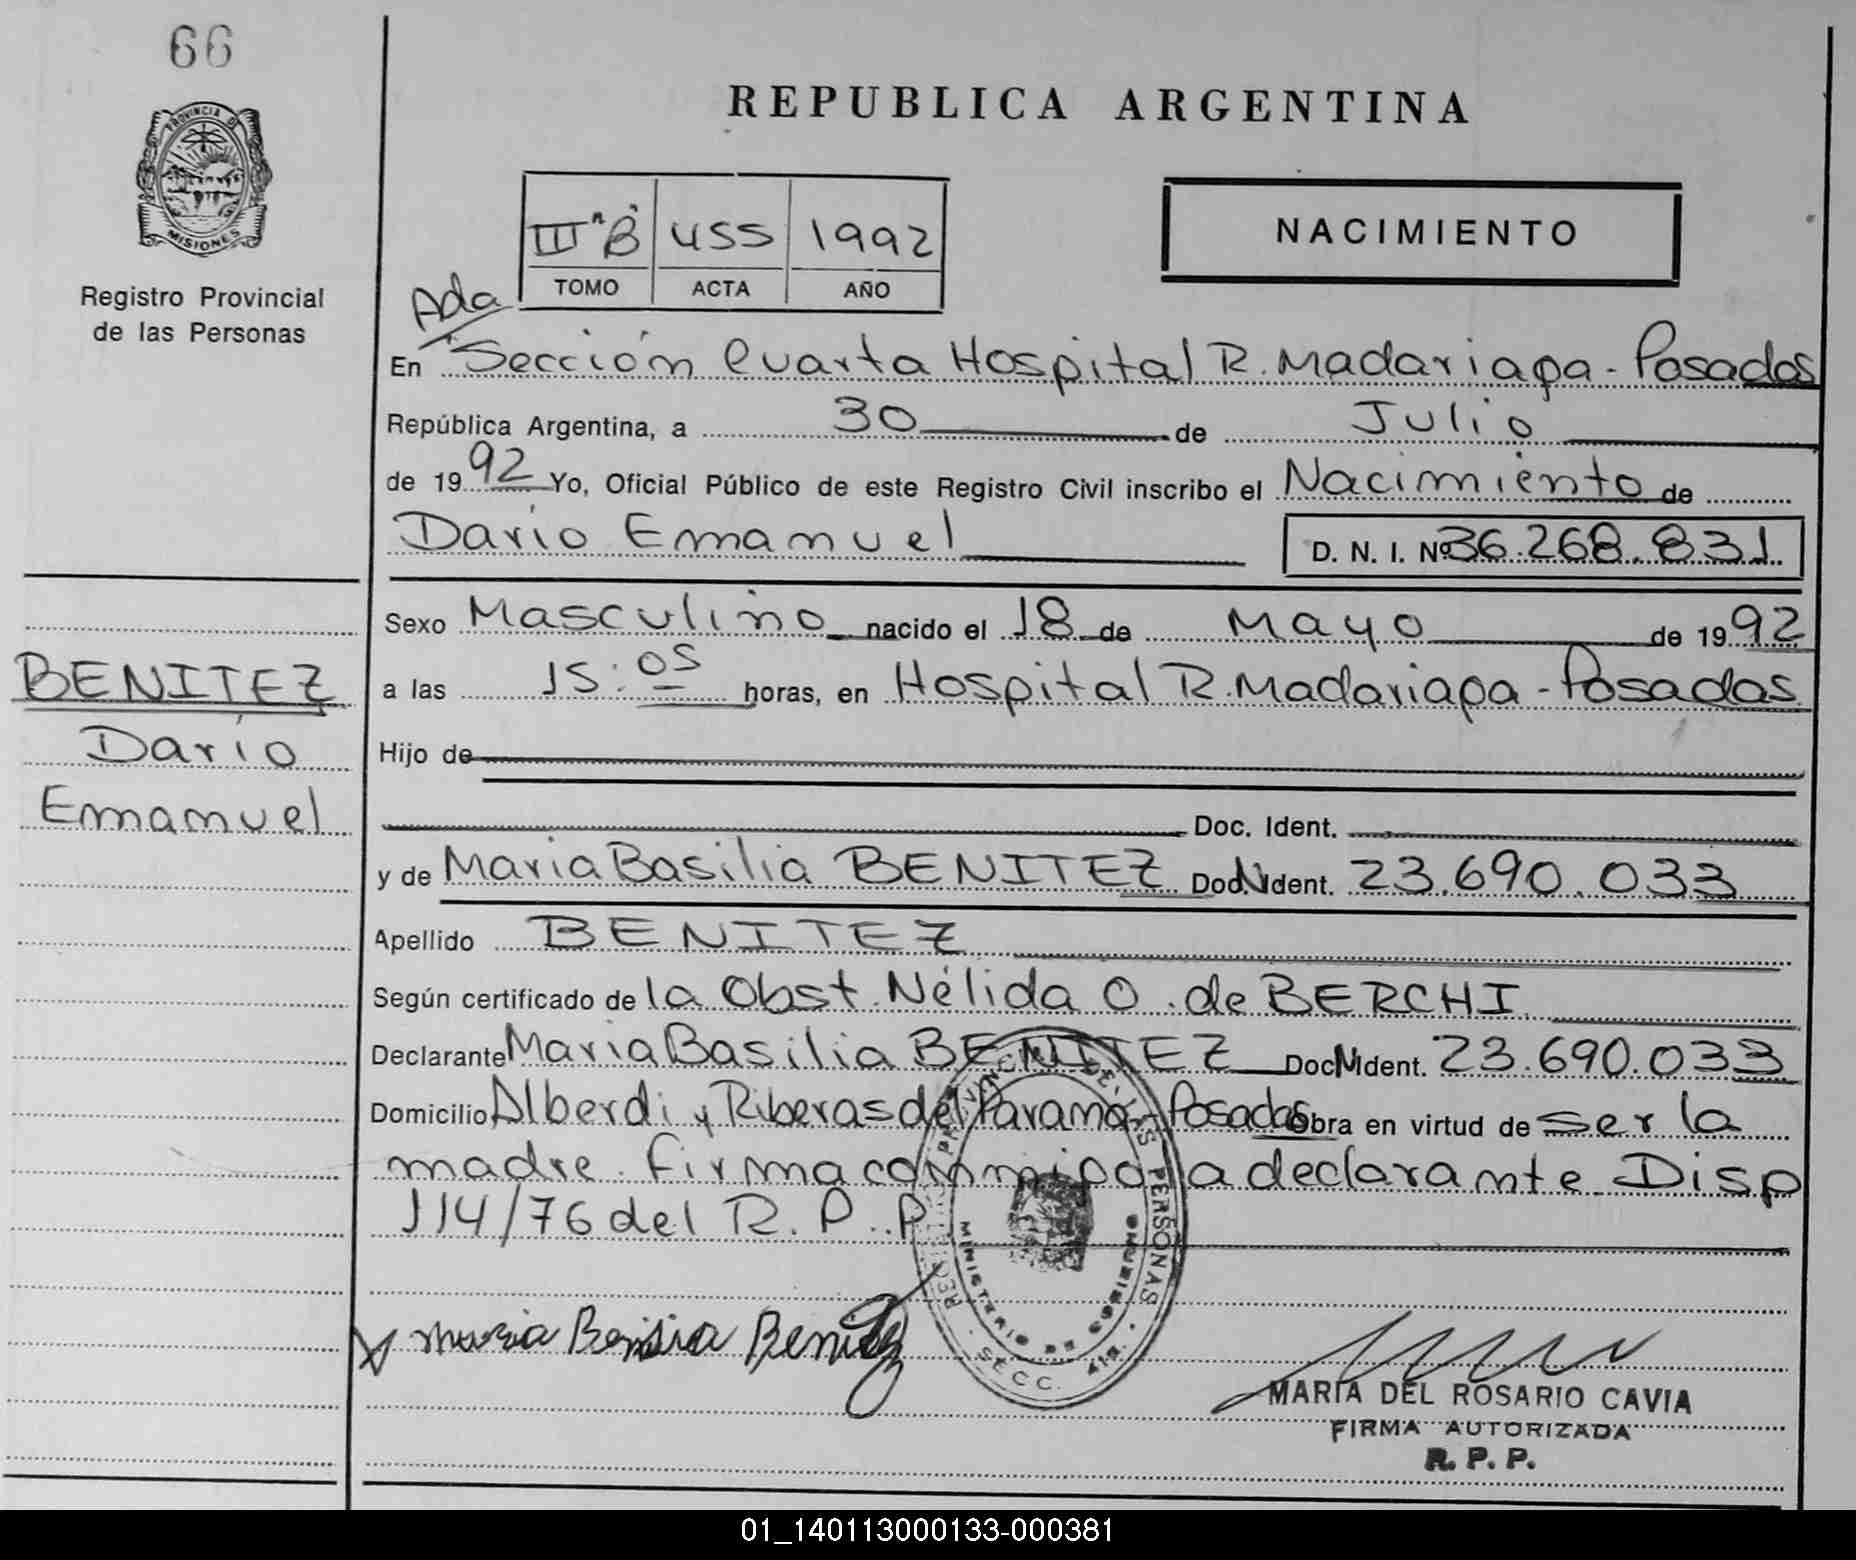 66
REPUBLICA ARGENTINA
PROVINCIA D
MISIONES
Registro Provincial
de las Personas
III "B" 455 1992
TOMO ACTA AÑO
NACIMIENTO
Ada
En Sección Cuarta Hospital R. Madariaga - Posadas
República Argentina, a 30 de Julio
de 1992 Yo, Oficial Público de este Registro Civil inscribo el Nacimiento de
Dario Emanuel D. N. I. Nº 36.268.831
Sexo Masculino nacido el 18 de Mayo de 1992
a las 15:05 horas, en Hospital R. Madariaga - Posadas
Hijo de
Doc. Ident.
y de Maria Basilia BENITEZ Doc. Ident. 23.690.033
Apellido BENITEZ
Según certificado de la Obst. Nélida O. de BERCHI
Declarante Maria Basilia BENITEZ Doc. Ident. 23.690.033
Domicilio Alberdi y Riberas del Parana - Posadas Obra en virtud de ser la
madre. Firma conmigo la declarante Disp
114/76 del R. P. P
BENITEZ
Dario
Emanuel
REGISTRO PROVINCIAL DE LAS PERSONAS
MINISTERIO DE GOBIERNO
SECC. 4ta.
Maria Basilia Benitez
MARIA DEL ROSARIO CAVIA
FIRMA AUTORIZADA
R. P. P.
01_140113000133-000381